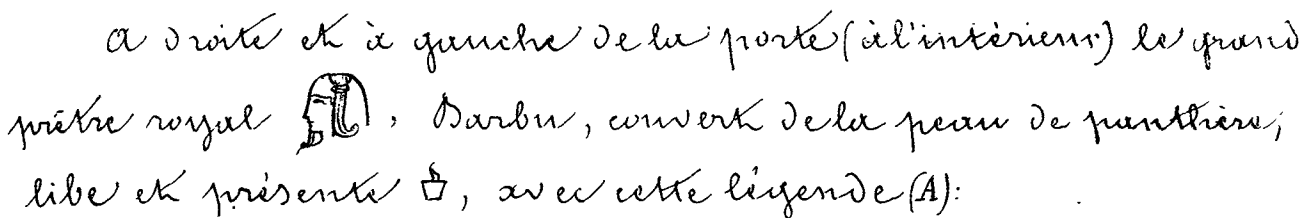 A droite et à gauche de la porte (à l'intérieur) le grand
prêtre royal , Barbu, couvert de la peau de panthère,
libe et présente , avec cette légende (A):